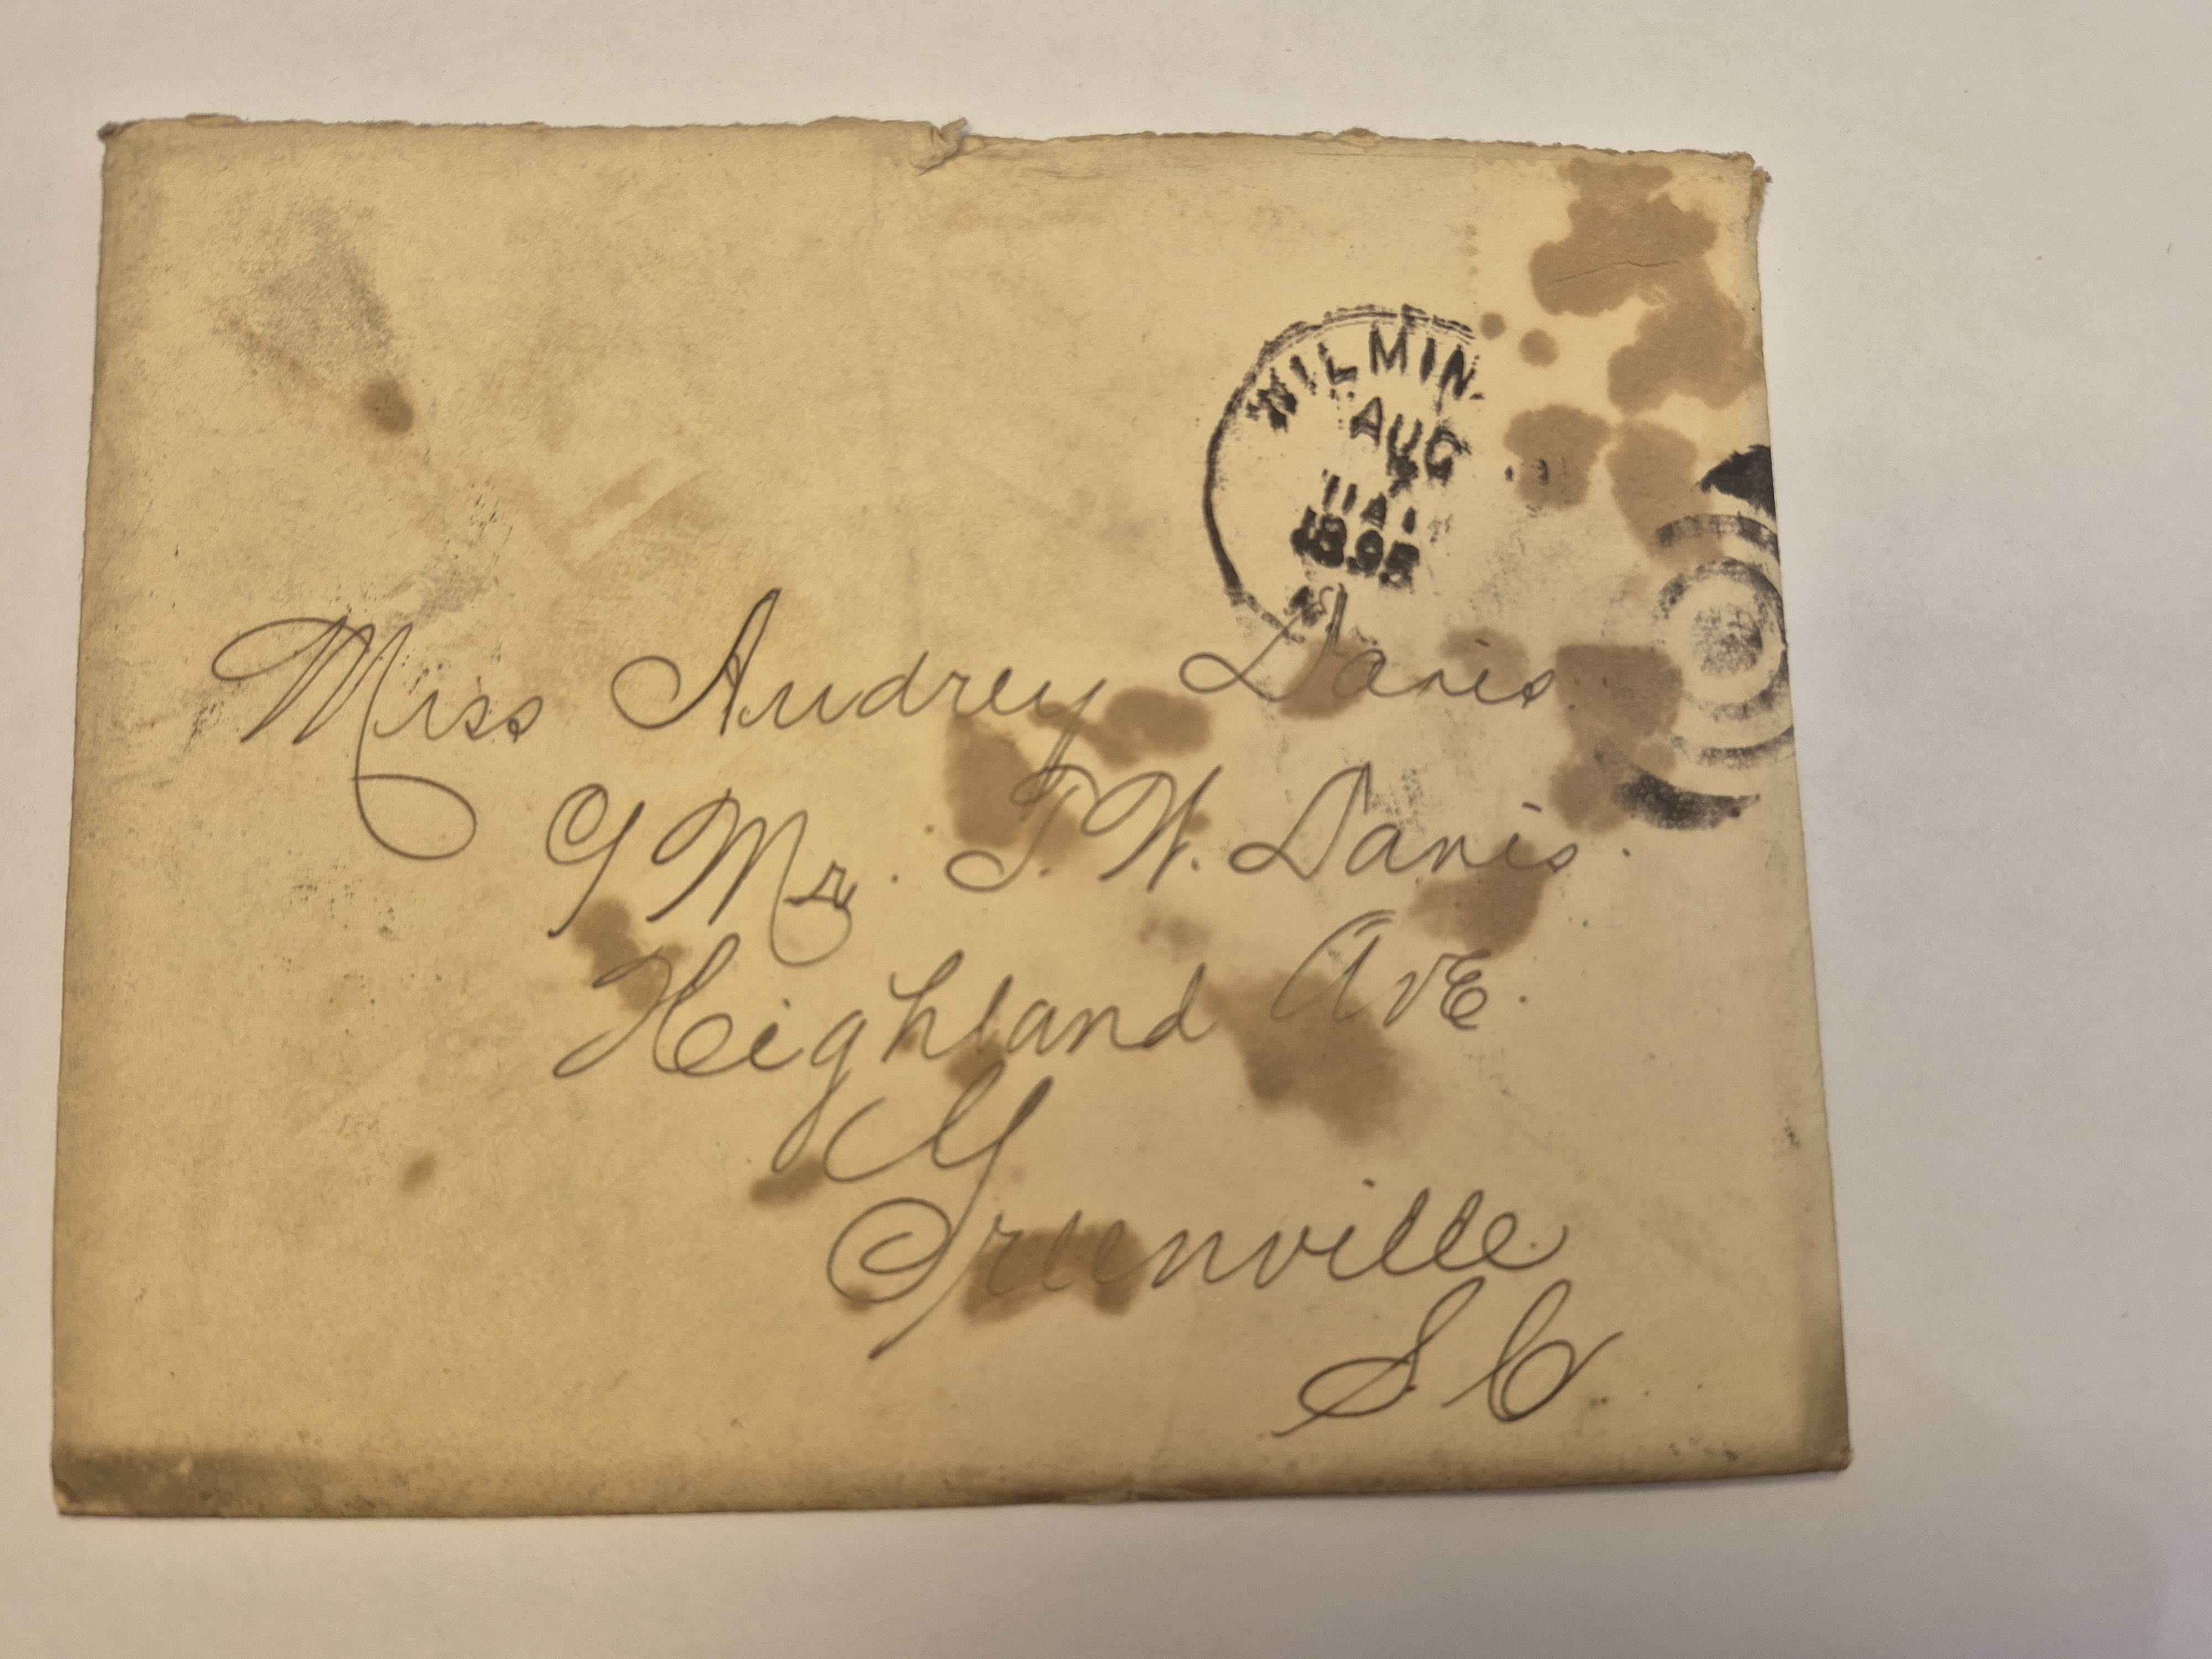 WILMIN
AUG
11 A
1895
Miss Audrey Davis
C/ Mr. T. W. Davis.
Highland Ave.
Greenville
S C